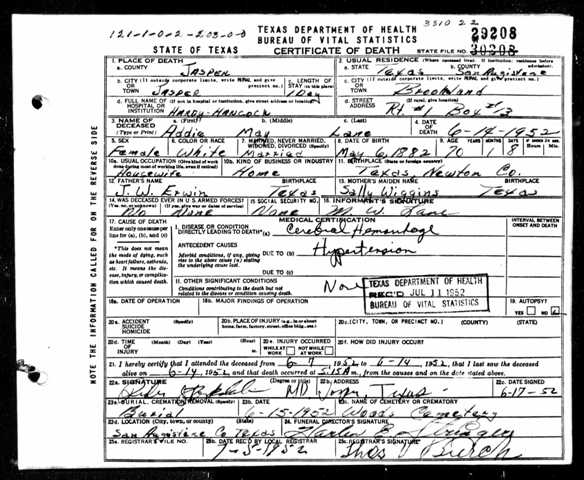 33102 2
121-1-0-2-203-0-0
TEXAS DEPARTMENT OF HEALTH
BUREAU OF VITAL STATISTICS
29208
STATE OF TEXAS
CERTIFICATE OF DEATH
STATE FILE NO. 30208
1. PLACE OF DEATH
a. COUNTY Jasper
2. USUAL RESIDENCE (Where deceased lived. If institution: residence before admission)
a. STATE Texas b. COUNTY San Augustine
b. CITY (If outside corporate limits, write RURAL and give precinct no.) OR TOWN Jasper
c. LENGTH OF STAY (in this place) 1 Day
c. CITY (If outside corporate limits, write RURAL and give precinct no.) OR TOWN Brookland
d. FULL NAME OF (If not in hospital or institution, give street address or location) HOSPITAL OR INSTITUTION Hardy-Hancock
d. STREET ADDRESS (If rural, give location) Rt #1 Box #13
3. NAME OF DECEASED (Type or Print)
a. (First) Addie b. (Middle) May c. (Last) Lane
4. DATE OF DEATH 6-14-1952
5. SEX Female
6. COLOR OR RACE White
7. MARRIED, NEVER MARRIED, WIDOWED, DIVORCED (Specify) Married
8. DATE OF BIRTH May 6, 1882
9. AGE 70 1 8
10a. USUAL OCCUPATION Housewife
10b. KIND OF BUSINESS OR INDUSTRY Home
11. BIRTHPLACE (State or foreign country) Texas Newton Co.
12. FATHER'S NAME J. W. Erwin BIRTHPLACE Texas
13. MOTHER'S MAIDEN NAME Sally Wiggins BIRTHPLACE Texas
14. WAS DECEASED EVER IN U.S. ARMED FORCES? No None
15. SOCIAL SECURITY NO. None
16. INFORMANT'S SIGNATURE M. W. Lane
17. CAUSE OF DEATH
Enter only one cause per line for (a), (b), and (c)
MEDICAL CERTIFICATION
INTERVAL BETWEEN ONSET AND DEATH
I. DISEASE OR CONDITION DIRECTLY LEADING TO DEATH* (a) Cerebral Hemorrhage
*This does not mean the mode of dying, such as heart failure, asthenia, etc. It means the disease, injury, or complication which caused death.
ANTECEDENT CAUSES
Morbid conditions, if any, giving rise to the above cause (a) stating the underlying cause last.
DUE TO (b) Hypertension
DUE TO (c)
II. OTHER SIGNIFICANT CONDITIONS
Conditions contributing to the death but not related to the disease or condition causing death.
TEXAS DEPARTMENT OF HEALTH
REC'D JUL 11 1952
BUREAU OF VITAL STATISTICS
18a. DATE OF OPERATION
18b. MAJOR FINDINGS OF OPERATION
19. AUTOPSY?
YES NO
20a. ACCIDENT SUICIDE HOMICIDE (Specify)
20b. PLACE OF INJURY (e.g., in or about home, farm, factory, street, office bldg., etc.)
20c. (CITY, TOWN, OR PRECINCT NO.) (COUNTY) (STATE)
20d. TIME OF INJURY (Month) (Day) (Year) (Hour)
20e. INJURY OCCURRED WHILE AT WORK NOT WHILE AT WORK
20f. HOW DID INJURY OCCUR?
21. I hereby certify that I attended the deceased from 1952, to 6-14, 1952, that I last saw the deceased
alive on 6-14, 1952, and that death occurred at 5:15A m., from the causes and on the date stated above.
22a. SIGNATURE (Degree or title) MD
22b. ADDRESS Texas
22c. DATE SIGNED 6-17-52
23a. BURIAL, CREMATION, REMOVAL (Specify) Burial
23b. DATE 6-15-1952
23c. NAME OF CEMETERY OR CREMATORY Woods Cemetery
23d. LOCATION (City, town, or county) (State) San Augustine Co Texas
24. FUNERAL DIRECTOR'S SIGNATURE
25a. REGISTRAR'S FILE NO.
25b. DATE REC'D BY LOCAL REGISTRAR 7-5-1952
25c. REGISTRAR'S SIGNATURE Burch
NOTE THE INFORMATION CALLED FOR ON THE REVERSE SIDE